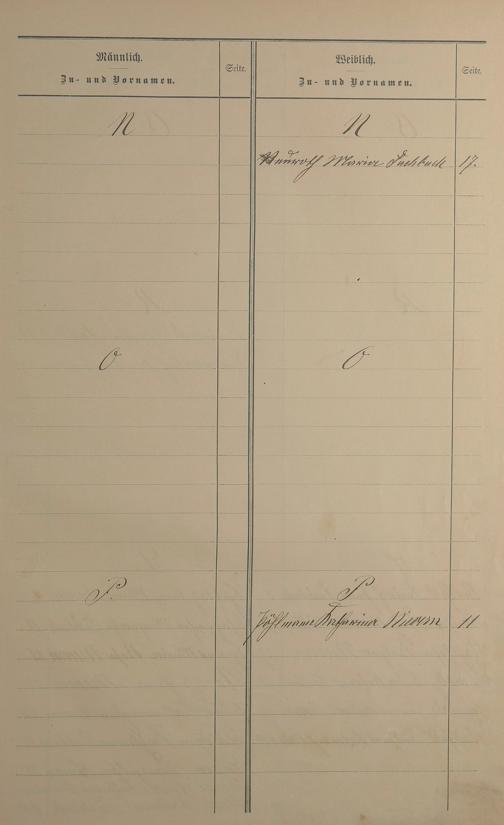 Männlich.
Zu- und Vornamen.
Seite.
Weiblich.
Zu- und Vornamen.
Seite.
N
N
Maria 17.
O
O
P.
P
Pöhlmann Katharina 11